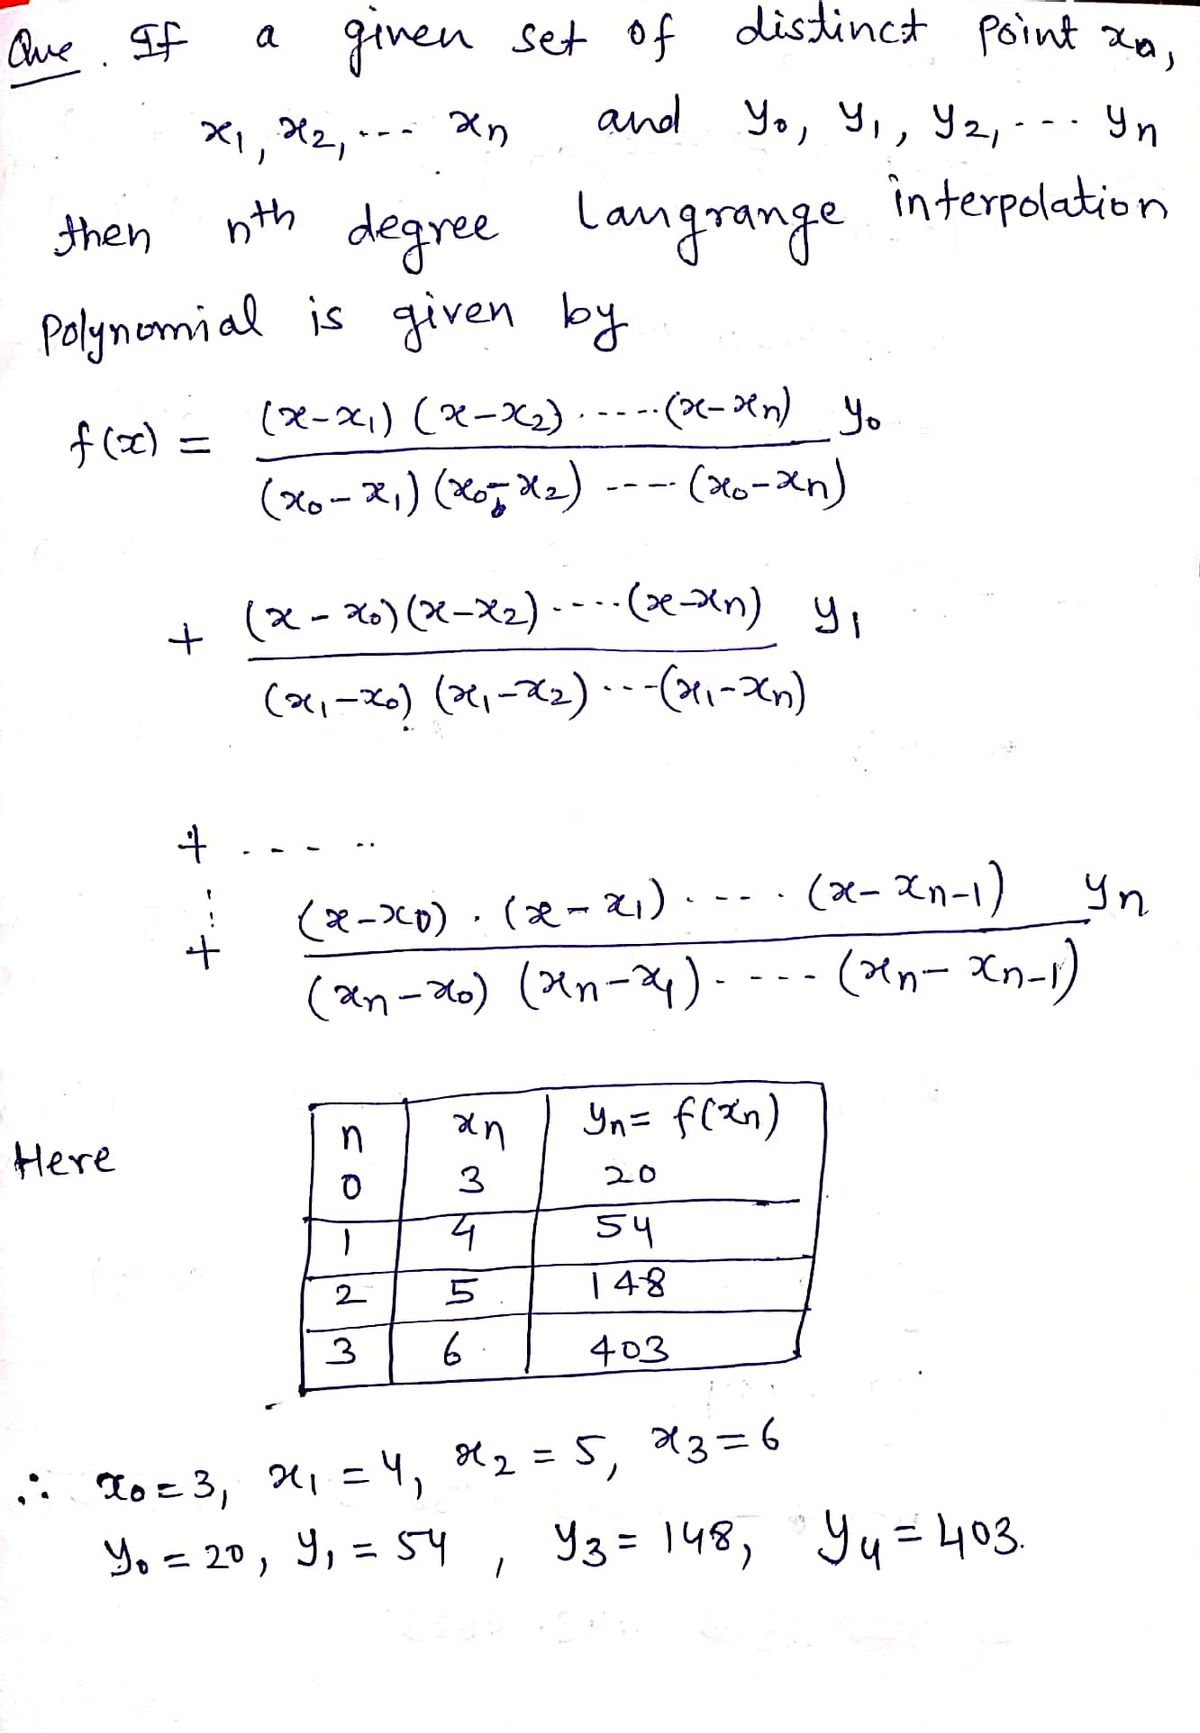 Que. If a given set of distinct point x0,
x1, x2, --- xn and y0, y1, y2, --- yn
then nth degree Langrange interpolation
Polynomial is given by
f(x) = (x-x1) (x-x2) ----- (x-xn) y0
(x0-x1) (x0-x2) ---- (x0-xn)
+ (x-x0) (x-x2) ---- (x-xn) y1
(x1-x0) (x1-x2) --- (x1-xn)
+ -----
+ (x-x0) . (x-x1) ---- (x-xn-1) yn
(xn-x0) (xn-x1) ---- (xn-xn-1)
Here
n xn yn = f(xn)
0 3 20
1 4 54
2 5 148
3 6 403
∴ x0 = 3, x1 = 4, x2 = 5, x3 = 6
y0 = 20, y1 = 54, y3 = 148, y4 = 403.